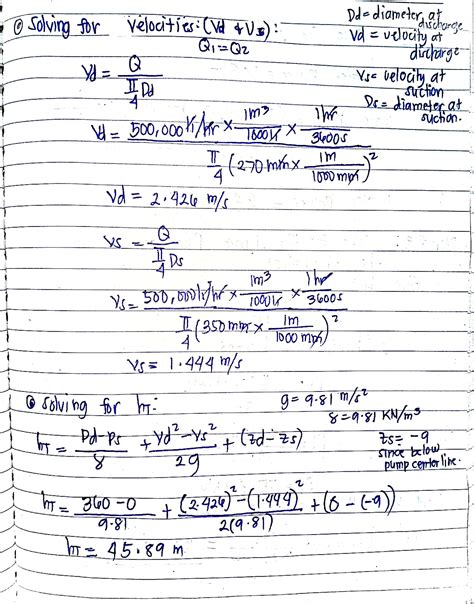 Solving for velocities: (Vd & Vs):
Q1 = Q2
Dd = diameter at discharge
Vd = velocity at discharge
Vs = velocity at suction
Ds = diameter at suction.
Vd = Q / π/4 Dd
Vd = 500,000 li/hr × 1m³/1000li × 1hr/3600s / π/4 (270 mm × 1m/1000 mm)²
Vd = 2.426 m/s
Vs = Q / π/4 Ds
Vs = 500,000 li/hr × 1m³/1000li × 1hr/3600s / π/4 (350 mm × 1m/1000 mm)²
Vs = 1.444 m/s
Solving for hT:
g = 9.81 m/s²
γ = 9.81 KN/m³
hT = Pd - Ps / γ + Vd² - Vs² / 2g + (Zd - Zs)
Zs = -9
since below
pump center line.
hT = 360 - 0 / 9.81 + (2.426)² - (1.444)² / 2(9.81) + (0 - (-9))
hT = 45.89 m